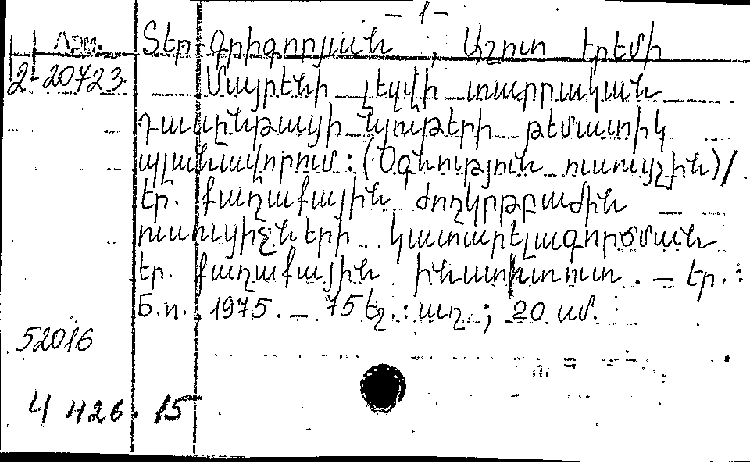 — 1 —
Տեր-Գրիգորյան, Աշոտ Երեմի
2-20723 Մայրենի լեզվի տարրական
դասընթացի նյութերի թեմատիկ
պլանավորում: (Օգնություն ուսուցչին)/
Եր. քաղաքային ժողկրթբաժին
ուսուցիչների կատարելագործման
Եր. քաղաքային ինստիտուտ. — Եր.:
Բ.ո. 1975. — 75 էջ.: աղ.; 20 սմ.
52016
4 426. 15